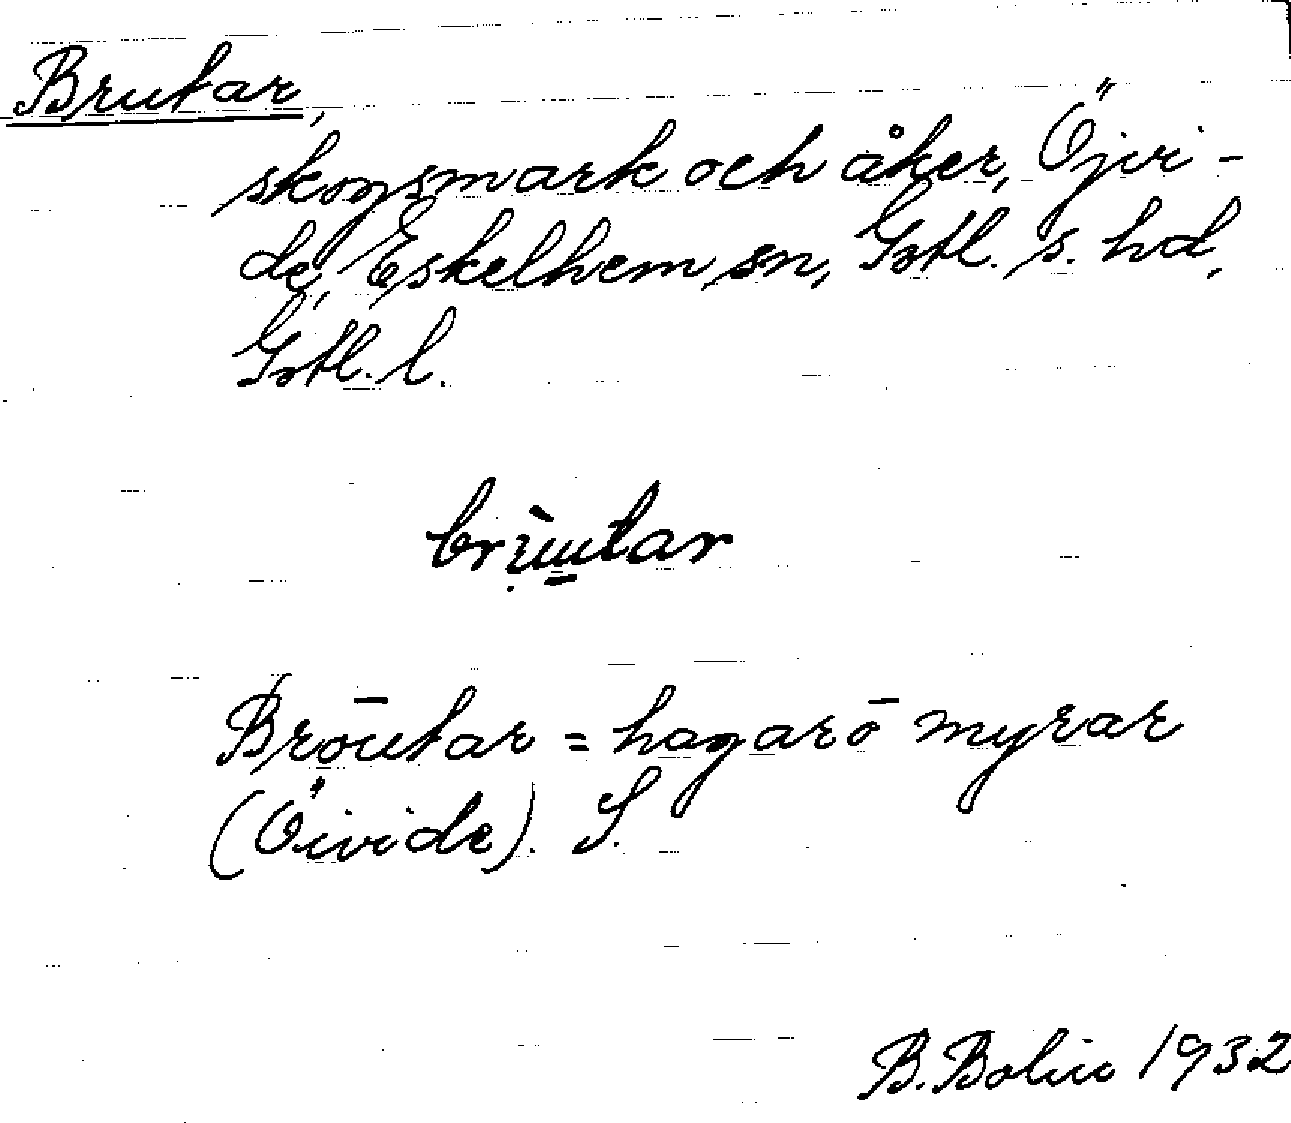 Brutar,
skogsmark och åker, Öjvi-
de, Eskelhem sn, Gotl. s. hd,
Gotl. l.
brùutar
Brōutar = hagar ō myrar
(Öivide). S.
B. Bolin 1932